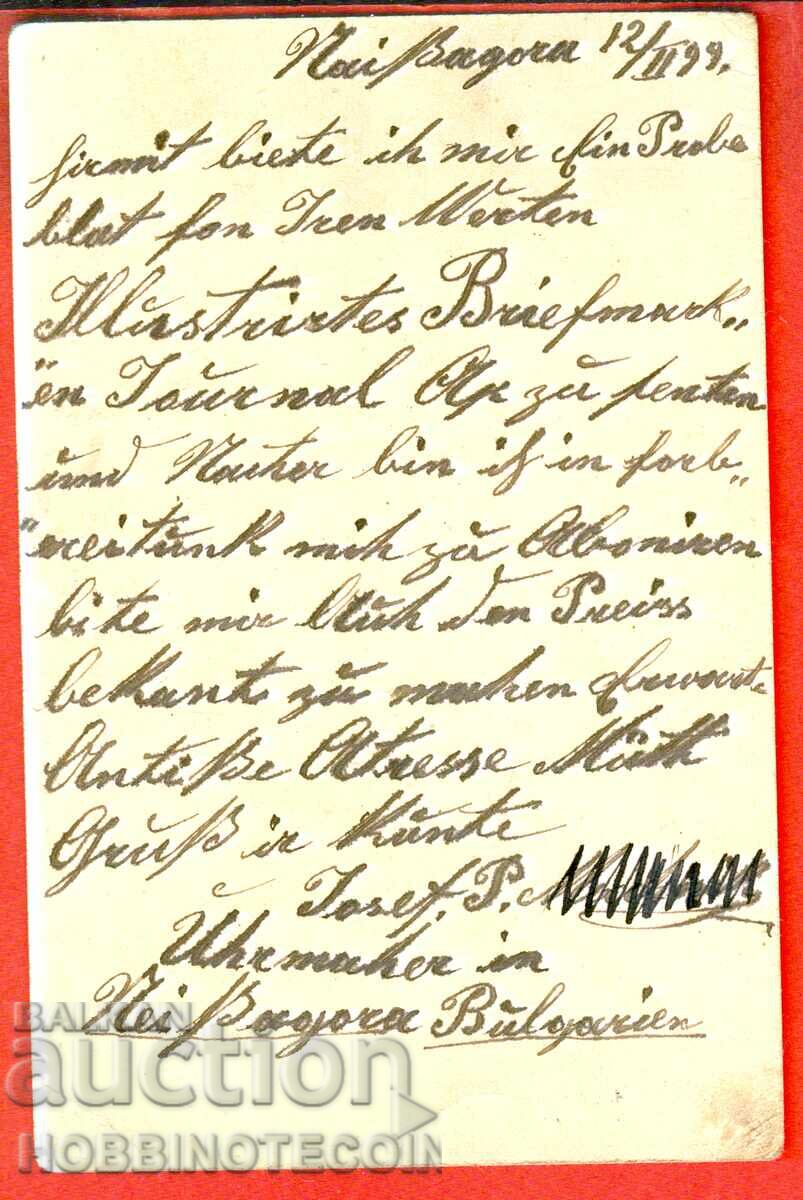 Naißagora 12/II 99.
hirmit biete ih mir Ein Probe
blat fon Iren Werten
Illustrirtes Briefmark„
"en Journal Ap zu senten
und Nacher bin ih in forb„
"ereitunk mih zu Aboniren
bite mir Auh den Preiss
bekant zu mahen Erwart.
An tiße Atresse Mitt
Gruß ir Kunte
Josef. P.
Uhrmaher in
Nei ßagora Bulgarien
BALKAN
auction
HOBBINOTECOIN